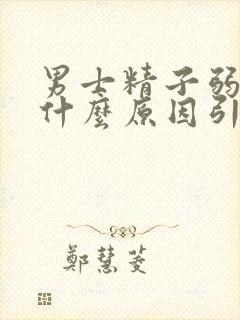 男士精子弱
什麼原因引
鄭慧菱